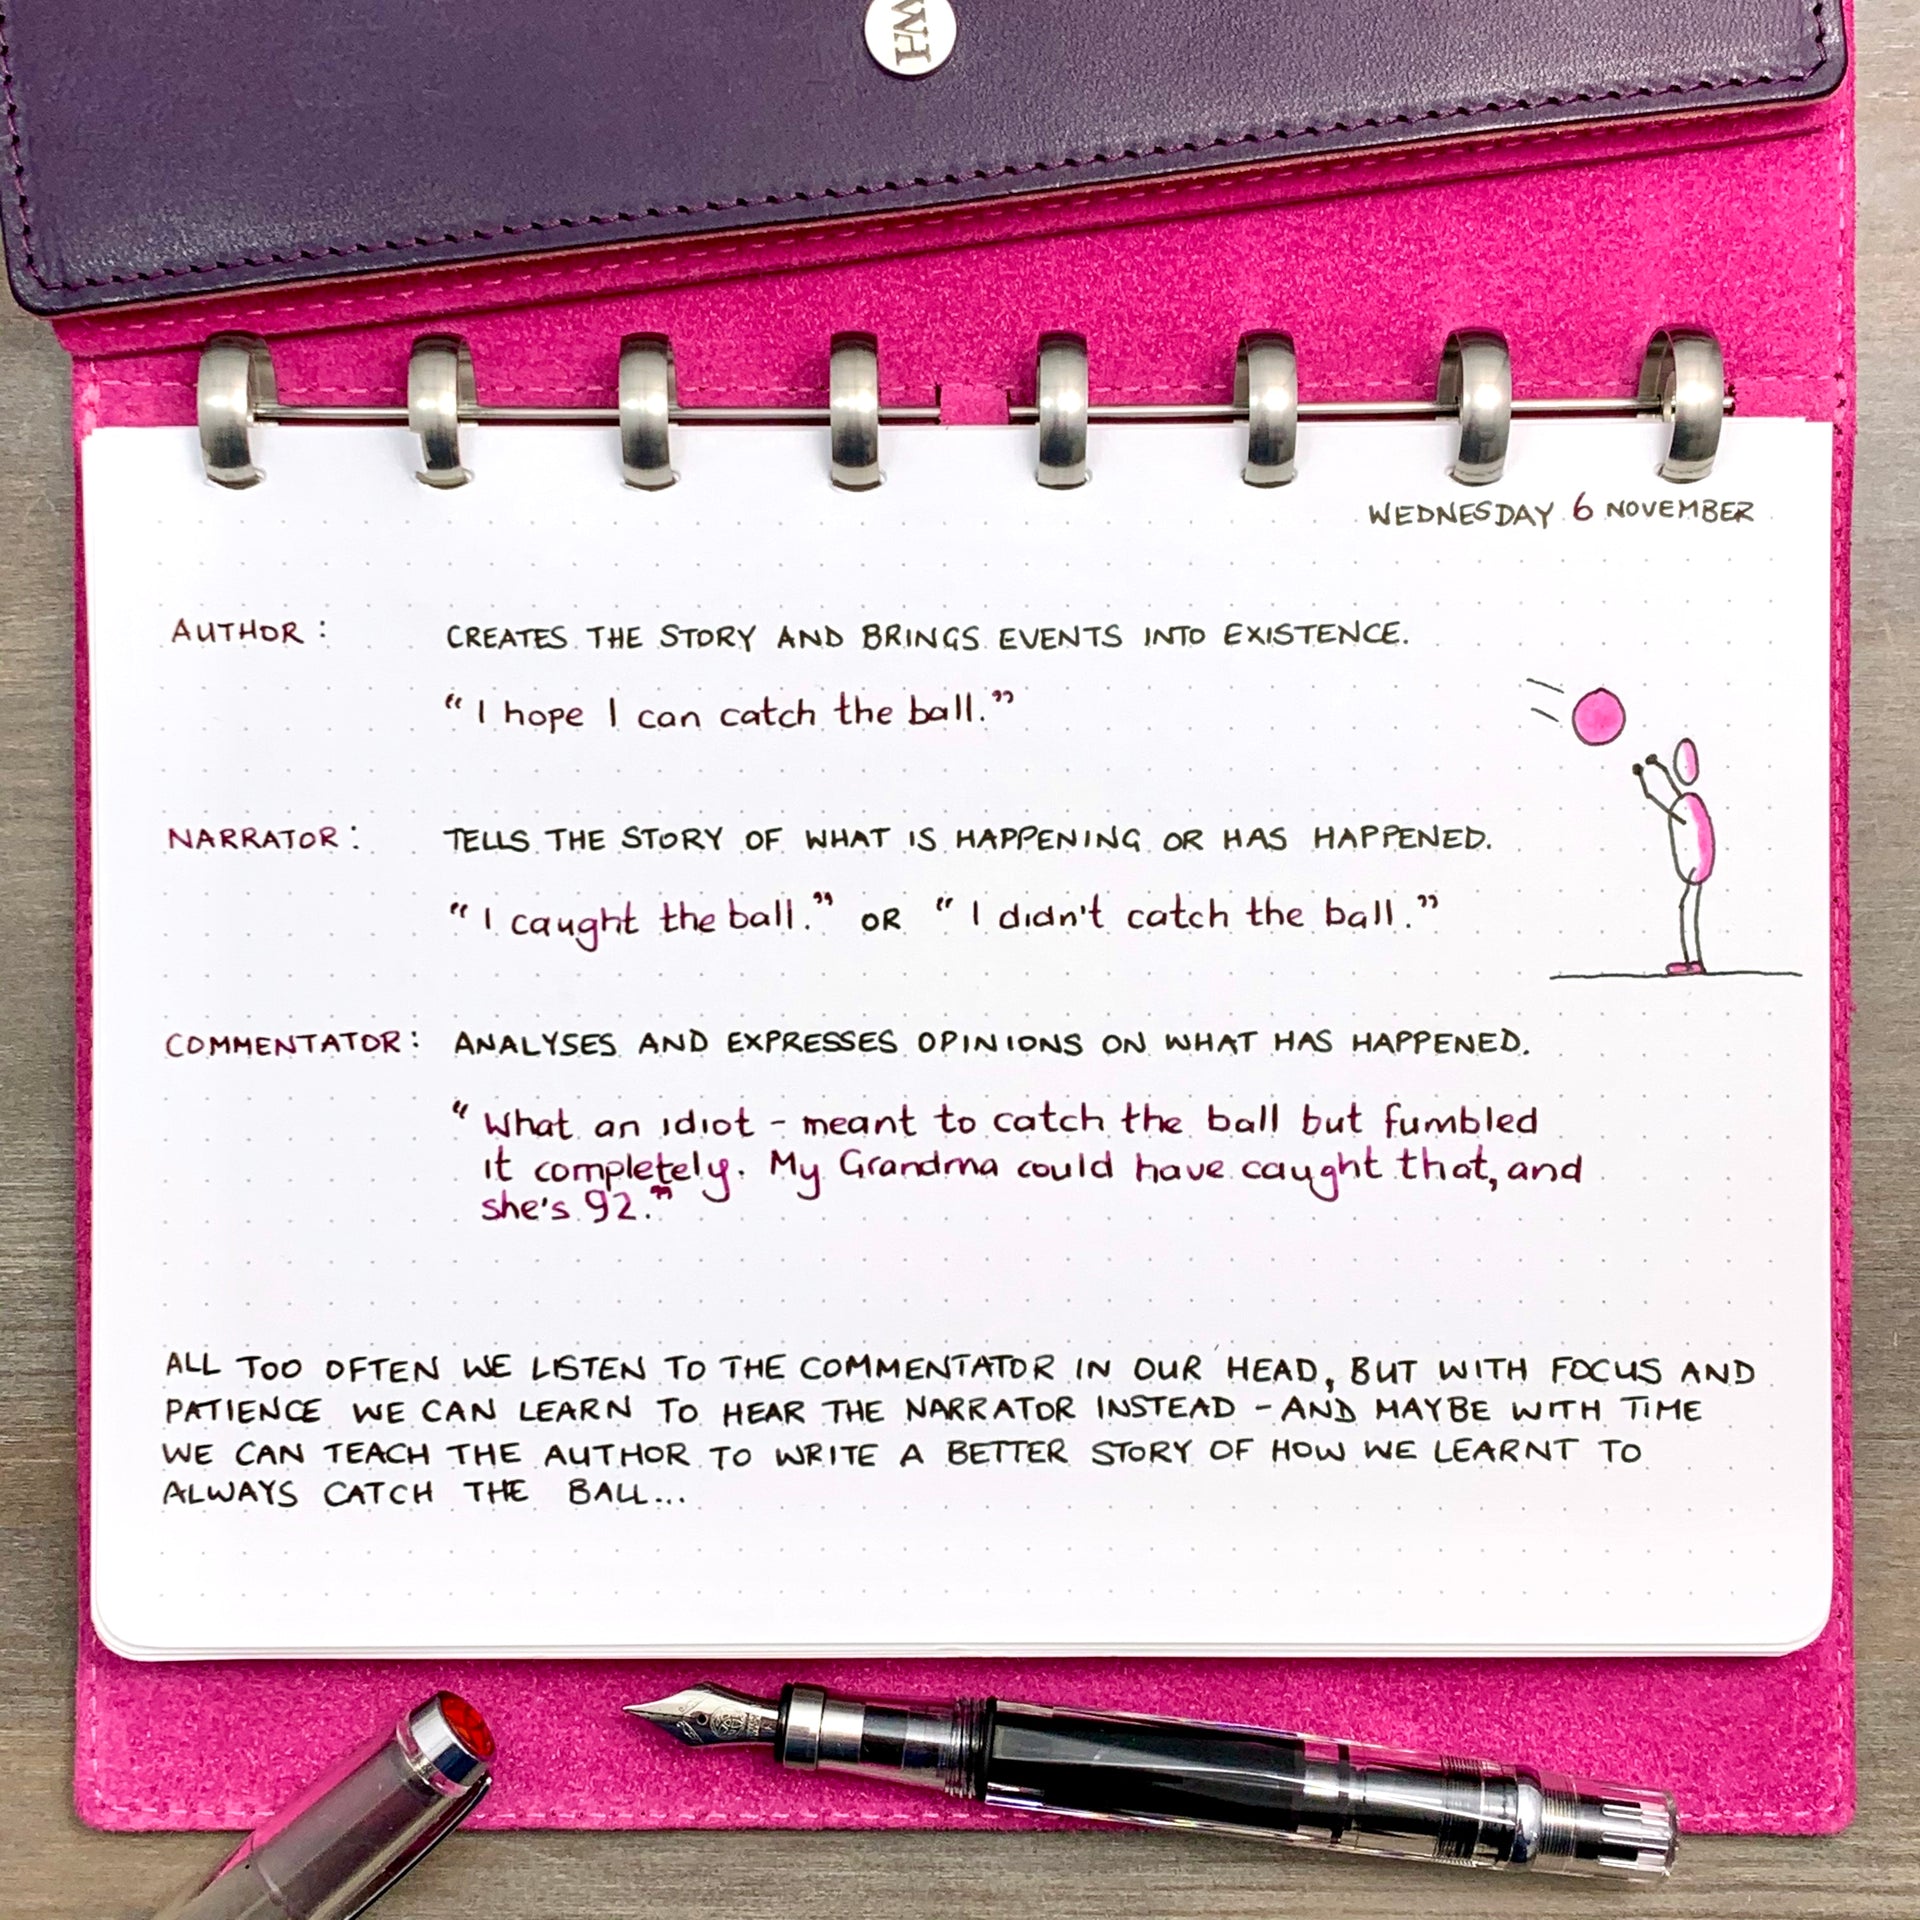 WH
WEDNESDAY 6 NOVEMBER
AUTHOR: CREATES THE STORY AND BRINGS EVENTS INTO EXISTENCE.
"I hope I can catch the ball."
NARRATOR: TELLS THE STORY OF WHAT IS HAPPENING OR HAS HAPPENED.
"I caught the ball." OR "I didn't catch the ball."
COMMENTATOR: ANALYSES AND EXPRESSES OPINIONS ON WHAT HAS HAPPENED.
"What an idiot - meant to catch the ball but fumbled
it completely. My Grandma could have caught that, and
she's 92."
ALL TOO OFTEN WE LISTEN TO THE COMMENTATOR IN OUR HEAD, BUT WITH FOCUS AND
PATIENCE WE CAN LEARN TO HEAR THE NARRATOR INSTEAD - AND MAYBE WITH TIME
WE CAN TEACH THE AUTHOR TO WRITE A BETTER STORY OF HOW WE LEARNT TO
ALWAYS CATCH THE BALL...